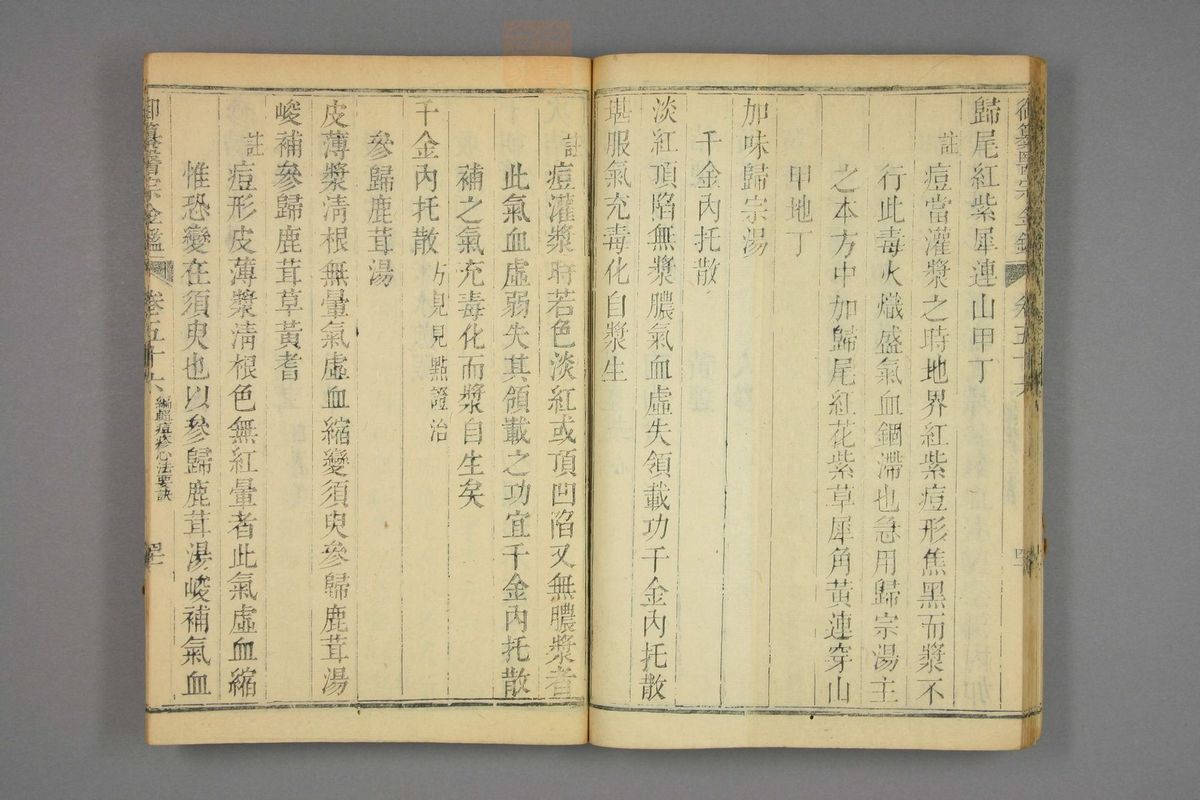 御纂醫宗金鑑 卷五十六
歸尾紅紫犀連山甲丁
註 痘當灌漿之時地界紅紫痘形焦黑而漿不
行此毒火熾盛氣血錮滯也急用歸宗湯主
之本方中加歸尾紅花紫草犀角黃連穿山
甲地丁
加味歸宗湯
千金內托散
淡紅頂陷無漿膿氣血虛失領載功千金內托散
堪服氣充毒化自漿生
註 痘灌漿時若色淡紅或頂凹陷又無膿漿者
此氣血虛弱失其領載之功宜千金內托散
補之氣充毒化而漿自生矣
千金內托散 方見見點證治
參歸鹿茸湯
皮薄漿清根無暈氣虛血縮變須臾參歸鹿茸湯
峻補參歸鹿茸草黃耆
註 痘形皮薄漿清根色無紅暈者此氣虛血縮
惟恐變在須臾也以參歸鹿茸湯峻補氣血
御纂醫宗金鑑 卷五十六 編輯痘疹心法要訣